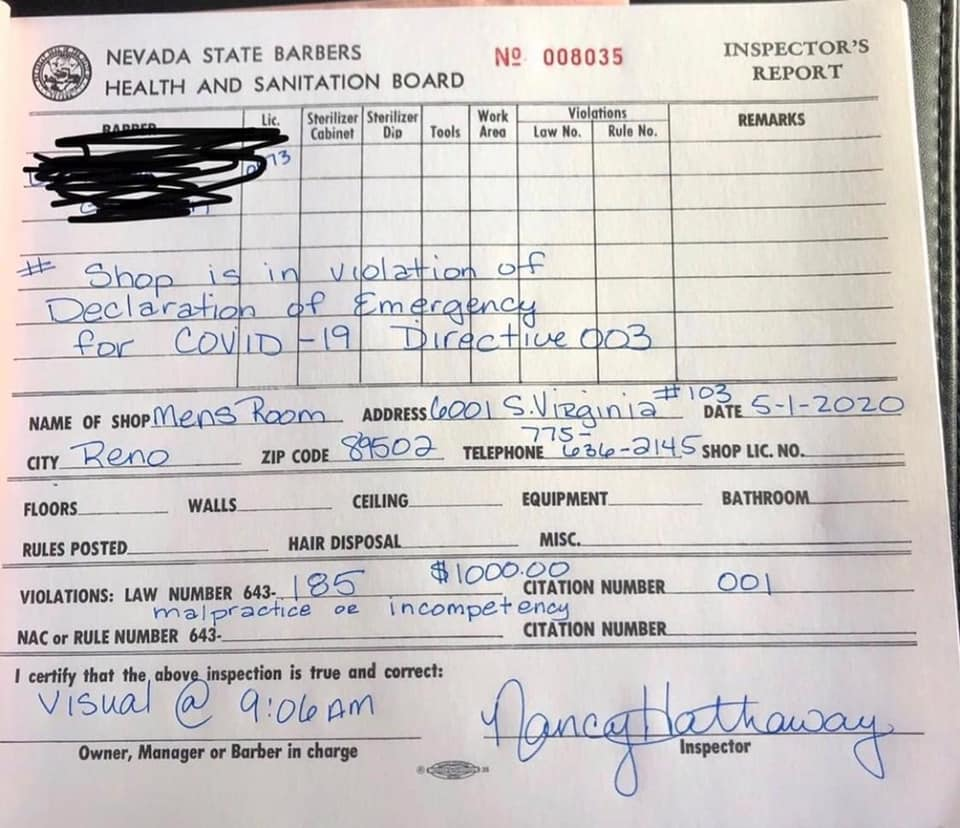 NEVADA STATE BARBERS
HEALTH AND SANITATION BOARD
Nº 008035
INSPECTOR'S
REPORT
BARBER
Lic.
Sterilizer Cabinet
Sterilizer Dip
Tools
Work Area
Violations
Law No.
Rule No.
REMARKS
73
# Shop is in violation of
Declaration of Emergency
for COVID-19 Directive 003
NAME OF SHOP Mens Room ADDRESS 6001 S. Virginia #103 DATE 5-1-2020
CITY Reno ZIP CODE 89502 TELEPHONE 775-636-2145 SHOP LIC. NO.
FLOORS WALLS CEILING EQUIPMENT BATHROOM
RULES POSTED HAIR DISPOSAL MISC.
VIOLATIONS: LAW NUMBER 643- 185 $1000.00 CITATION NUMBER 001
malpractice or incompetency
NAC or RULE NUMBER 643- CITATION NUMBER
I certify that the above inspection is true and correct:
Visual @ 9:06 AM Nancy Hathaway
Owner, Manager or Barber in charge Inspector